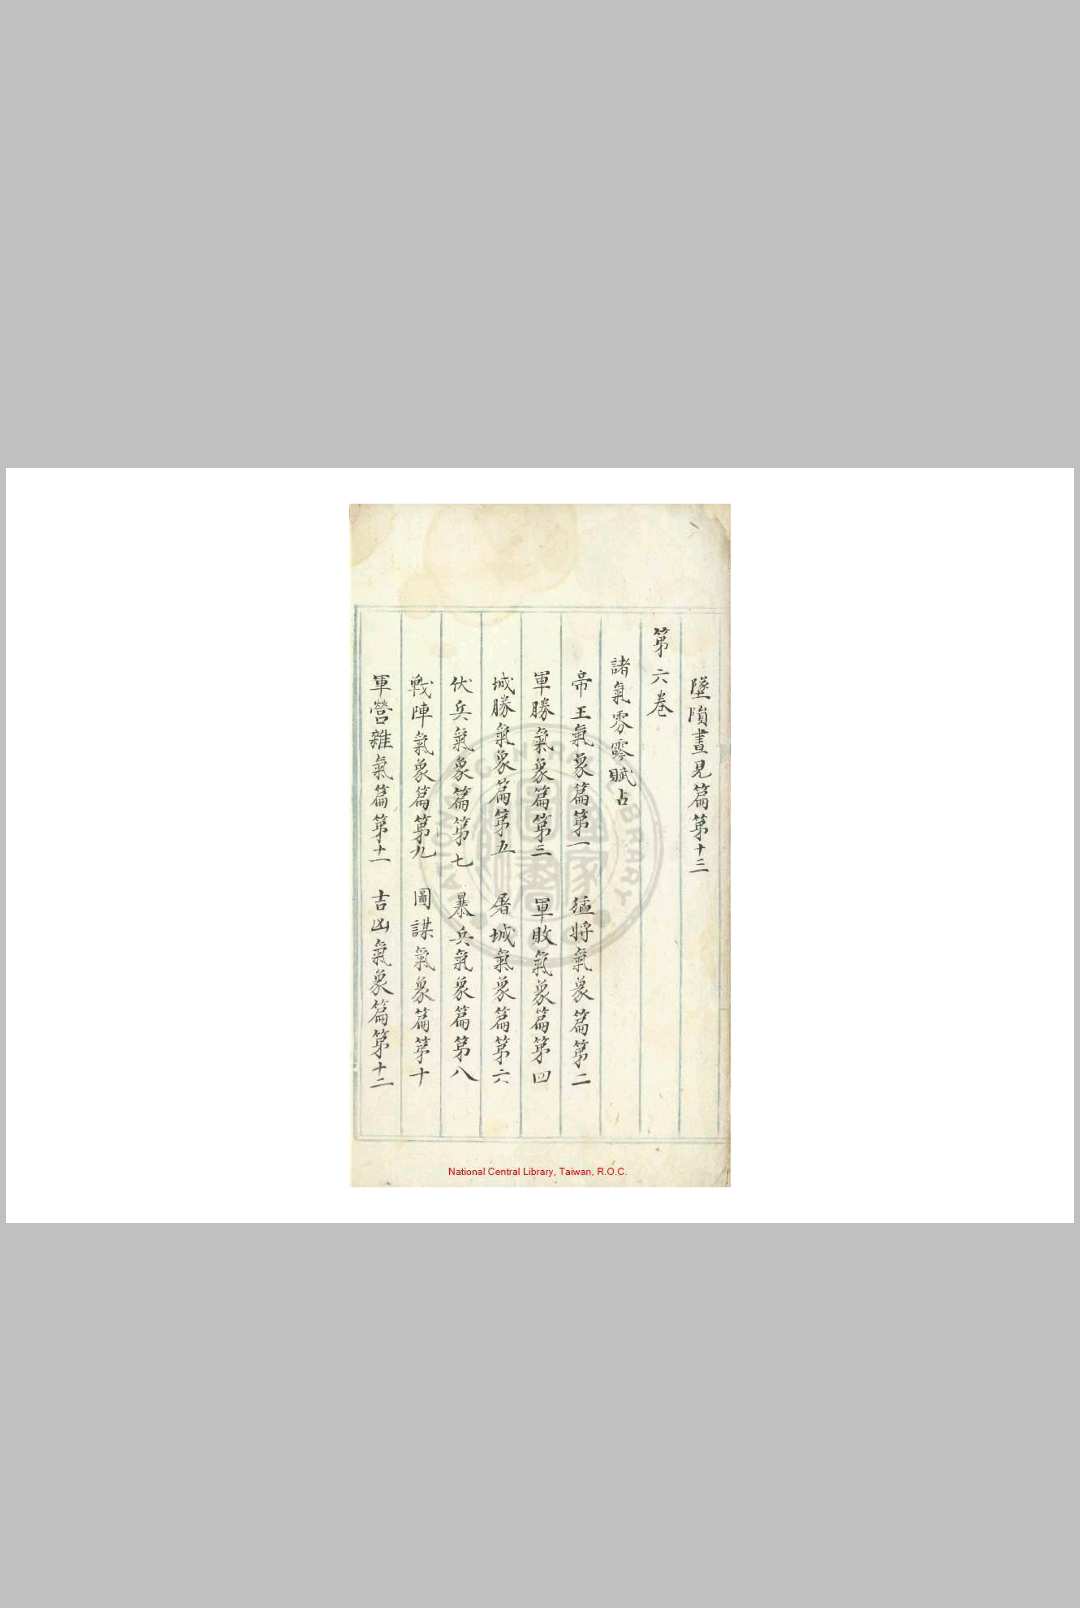 墜隕晝見篇第十三
第六卷
諸氣雰雺賦占
帝王氣象篇第一　猛將氣象篇第二
軍勝氣象篇第三　軍敗氣象篇第四
城勝氣象篇第五　屠城氣象篇第六
伏兵氣象篇第七　暴兵氣象篇第八
戰陣氣象篇第九　圖謀氣象篇第十
軍營雜氣篇第十一　吉凶氣象篇第十二
National Central Library, Taiwan, R.O.C.